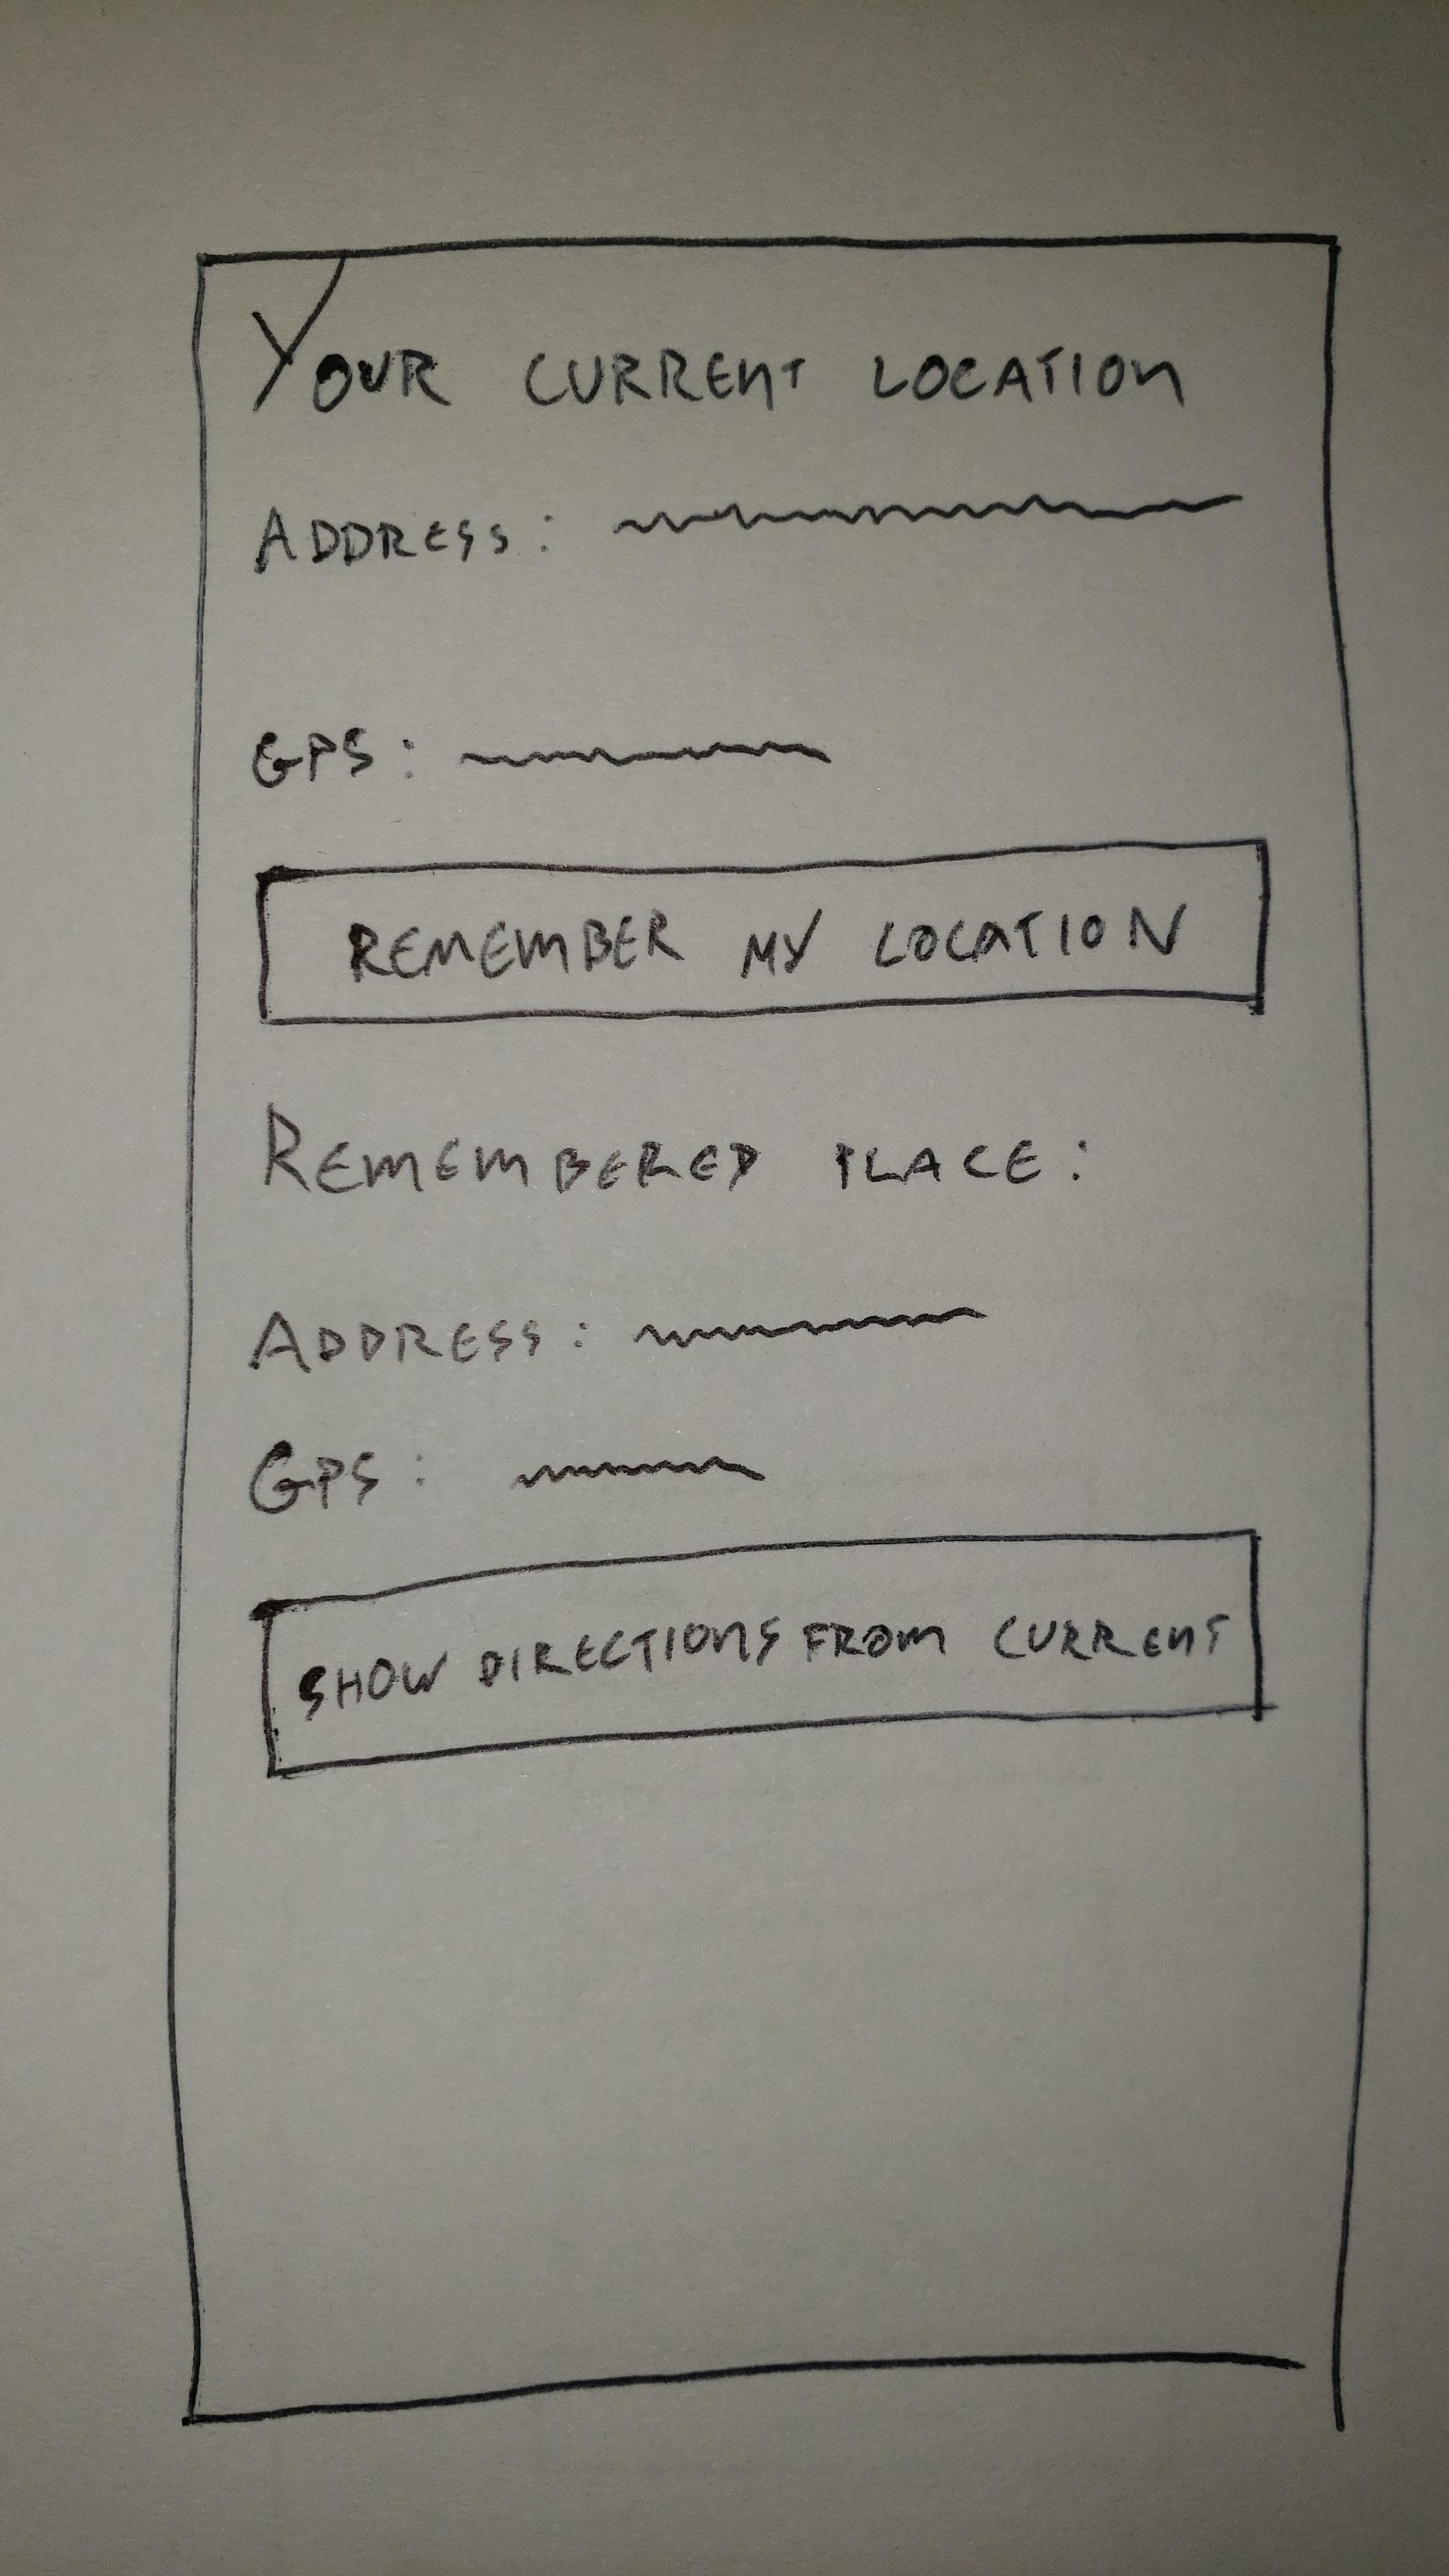 YOUR CURRENT LOCATION
ADDRESS:
GPS:
REMEMBER MY LOCATION
REMEMBERED PLACE:
ADDRESS:
GPS:
SHOW DIRECTIONS FROM CURRENT